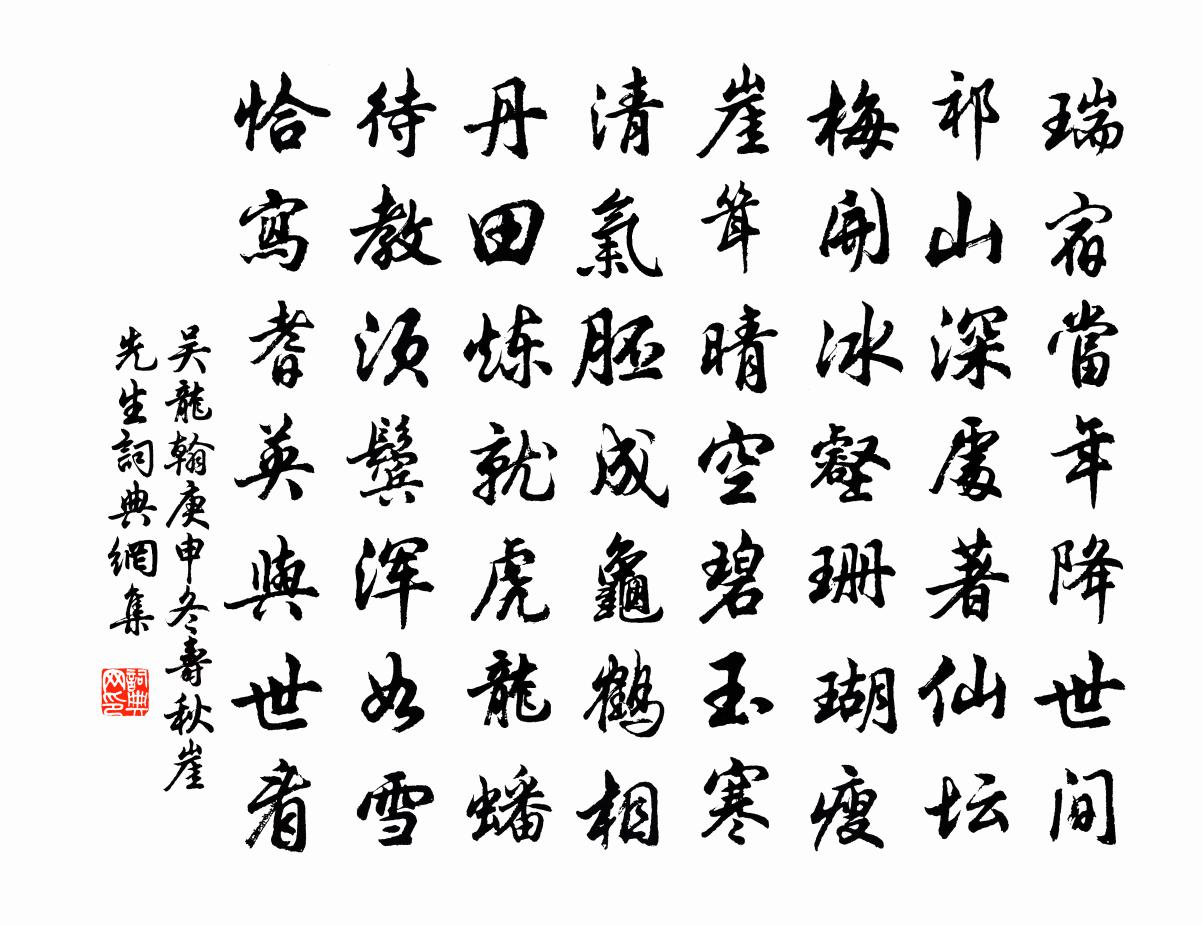 瑞宿當年降世間
祁山深處著仙坛
梅開冰壑珊瑚瘦
崖聳晴空碧玉寒
清氣胚成龜鶴相
丹田炼就虎龍蟠
待教须鬓浑如雪
恰寫耆英與世看
吴龍翰庚申冬壽秋崖
先生詞典網集
詞典网印